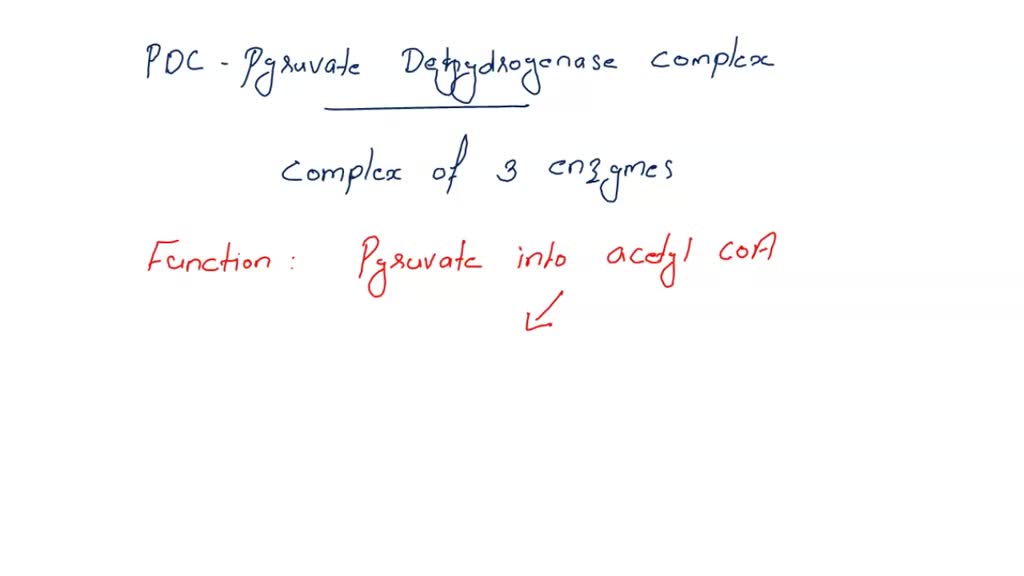 PDC - Pyruvate Dehydrogenase complex
complex of 3 enzymes
Function : Pyruvate into acetyl coA